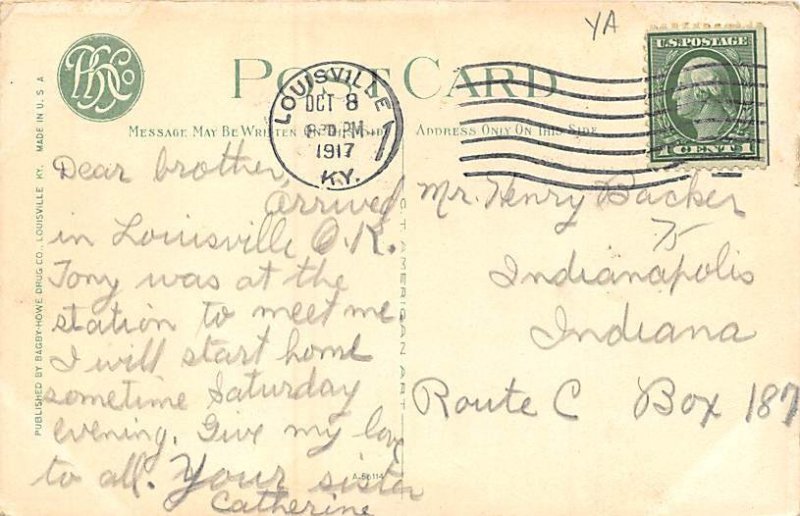 YA
U.S. POSTAGE
1 CENTS 1
BHCo
POST CARD
LOUISVILLE
OCT 8
8 30 PM
1917
KY.
MESSAGE MAY BE WRITTEN ON THIS SIDE
ADDRESS ONLY ON THIS SIDE
PUBLISHED BY BAGBY-HOWE DRUG CO., LOUISVILLE KY. MADE IN U.S.A
Dear brother,
arrived
in Louisville O.K.
Tony was at the
station to meet me.
I will start home
sometime Saturday
evening. Give my love
to all. Your sister
Catherine
AMERICAN ART
Mr. Henry Backer
Indianapolis
Indiana
Route C Box 187